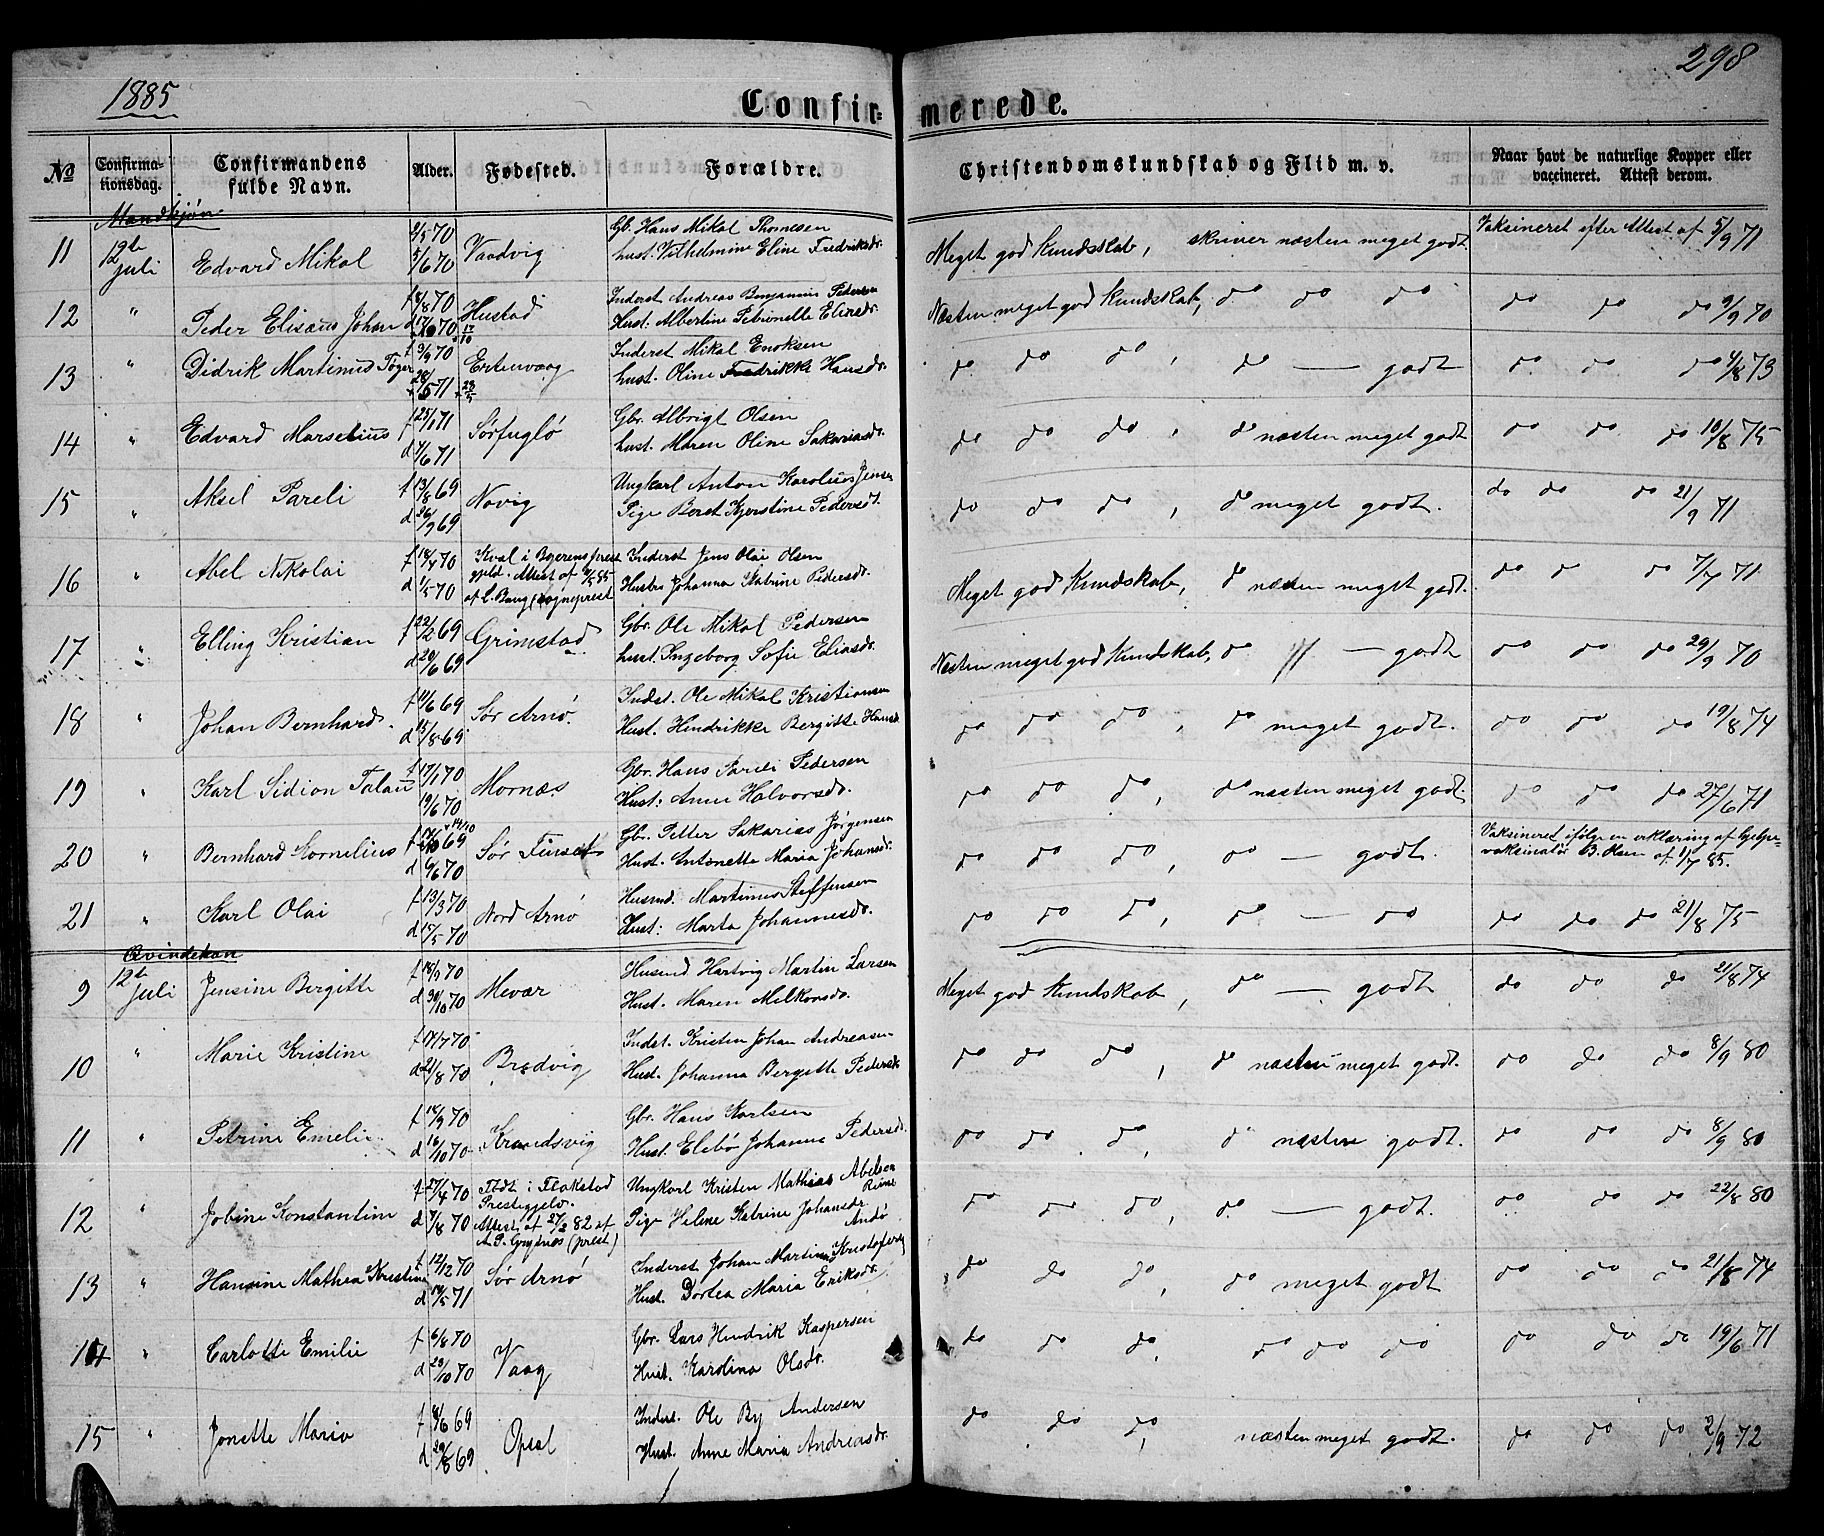 1885
298
Confir=
merede.
No
Confirma-
tionsdag.
Confirmandens
fulde Navn.
Alder.
Fødested.
Forældre.
Christendomskundskab og Flid m. v.
Naar havt de naturlige Kopper eller
vaccineret. Attest derom.
Mandkjøn.
11 12te Juli Edvard Mikal 2/5 70 5/6 70 Vaadvig Gb. Hans Mikal Thomesen
hust. Vilhelmine Eline Fredriksdr. Meget god Kundsskab, skriver næsten meget godt Vaksineret efter Attest af 5/9 71
12 " Peder Elisæus Johan 70 70 Hustad Inderst Andreas Benjamin Pedersen
Hust: Albertine Petronelle Eliasdr. Næsten meget god kundskab, do do do do do do 9/9 70
13 " Didrik Martinus Tøger f 3/9 70 71 Ertenvaag Inderst Mikal Enoksen
hust. Oline Fredrikke Hansdr. do do do, do — godt do do do 4/8 73
14 " Edvard Marselius f 25/1 71 d 4/6 71 Sørfuglø Gbr. Albrigt Olsen
hust. Maren Oline Sakariasdr. do do do, do næsten meget godt do do do 10/8 75
15 " Aksel Pareli f 13/8 69 d 26/9 69 Novig Ungkarl Anton Karolius Jensen
Pige Beret Kjerstine Pedersdt. do do do, do meget godt. do do do 21/9 71
16 " Abel Nikolai f 18/4 70 d 1/5 70 Kval i Bjerens prest
gjeld. Attest af 85
af L. Bang (sogneprest Inderst Jens Olai Olsen
Hustru Johanna Katrine Pedersdr. Meget god Kundskab, do næsten meget godt. do do do 7/7 71
17 " Elling Kristian f 22/2 69 d 20/6 69 Grimstad Gbr. Ole Mikal Pedersen
hust. Ingeborg Sofie Eliasdr. Næsten meget god Kundskab, do // — godt do do do 29/9 70
18 " Johan Bernhard. f 11/6 69 d 15/8 69 Sør Arnø. Indst. Ole Mikal Kristiansen
Hust. Hendrikke Bergitte Hansd do do do, do meget godt. do do do 19/8 74
19 " Karl Sidion f 17/1 70 19/6 70 Mornæs Gbr. Hans Pareli Pedersen
Hust: Anne Halvorsdr. do do do, do næsten meget godt. do do do 27/6 71
20 " Bernhard Kornelius f 69 d 9/6 70 Sør Finset Gbr. Petter Sakarias Jørgensen
Hust. Antonette Maria Johansdr. do do do, do — godt. Vaksineret ifølge en erklæring af hjelpe-
vaksinatør B. Olsen af 1/7 85.
21 " Karl Olai f 13/3 70 d 15/5 70 Nord Arnø Husmd. Martinus Steffensen
Hust: Marta Johannesdr. do do do, do — do do do do 21/8 75
Qvindekøn
9 12te Juli Jensine Bergitte f 18/9 70 d 30/10 70 Mevær Husmd Hartvig Martin Larsen
Hust. Maren Melkorsdr. Meget god Kundskab, do — godt do do do 21/8 74
10 " Marie Kristine f 17/7 70 d 21/8 70 Bredvig Indst. Kristen Johan Andreasen
Hust. Johanna Bergette Pedersd do do do, do næsten meget godt. do do do 8/9 80
11 " Petrine Emelie f 14/9 70 d 16/10 70 Krandsvig Gbr. Hans Karlsen
Hust Elebø Johanne Pedersdr. do do do, do næsten godt. do do do 8/9 80
12 Jobine Konstantine f 27/4 70 d 7/8 70 Født i Flakstad
Prestegjeld.
Attest af 27/2 82 af
A. P. Grytnæs (prest) Ungkarl Kristen Mathias Abelsen
Reine
Pige Helene Katrine Johansdr
Andø do do do, do — godt. do do do 22/8 80
13 " Hansine Mathea Kristine f 12/12 70 d 14/5 71 Sør Arnø Inderst Johan Martinus Kristofersen
Hust. Dortea Maria Eriksdr. do do do, do meget godt do do do 21/8 74
14 " Carlotte Emilie f 6/8 70 d 23/10 70 Vaag Gbr. Lars Hendrik Kaspersen
Hust. Karolina Olsdr. do do do, do do do do do do 19/6 71
15 " Jonette Maria f 8/6 69 d 29/8 69 Opsal Inderst. Ole By Andersen
Hust. Anne Maria Andreasdr. do do do, næsten meget godt. do do do 2/9 72